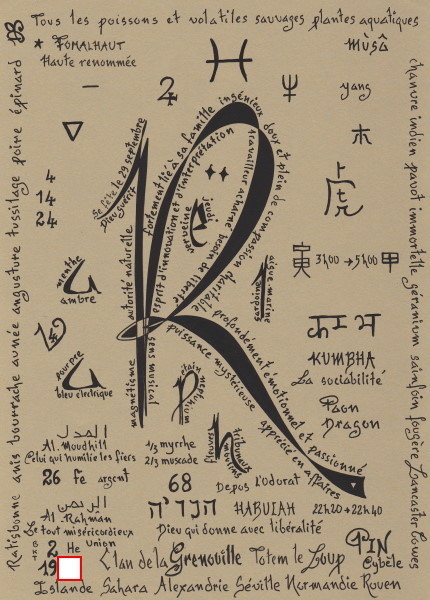 Tous les poissons et volatiles sauvages plantes aquatiques
chanvre indien pavot immortelle géranium sainfoin fougère Lancaster Cowes
Islande Sahara Alexandrie Séville Normandie Rouen
Ratisbonne anis bourrache aunée angusture tussilage poire épinard
* FOMALHAUT
Haute renommée
♓
mùsâ
yang
木
虎
4
14
24
se fête le 29 septembre
Dieu guérit
fortement lié à sa famille ingénieux doux et plein de compassion charitable profondément émotionnel et passionné
esprit d'innovation et d'interprétation
travailleur acharné besoin de liberté
puissance mystérieuse
apprécie en affaires
autorité naturelle
magnétisme
sens musical
verveine
menthe
ambre
aigue-marine
sardoine
寅 3h00 → 5h00 甲
KUMBHA
La sociabilité
Paon
Dragon
pourpre
bleu électrique
étain
neptunium
fleuves
moulins
tribunaux
المذل
Al.Moudhill
Celui qui humilie les fiers
26 Fe argent
1/3 myrrhe
2/3 muscade
68
Depus L'odorat
الرحمن
Al.Rahman
Le tout miséricordieux
הבויה HABUIAH 22h20 → 22h40
Dieu qui donne avec libéralité
2 He union
Clan de la Grenouille Totem le Loup
QPIN
Cybèle
19